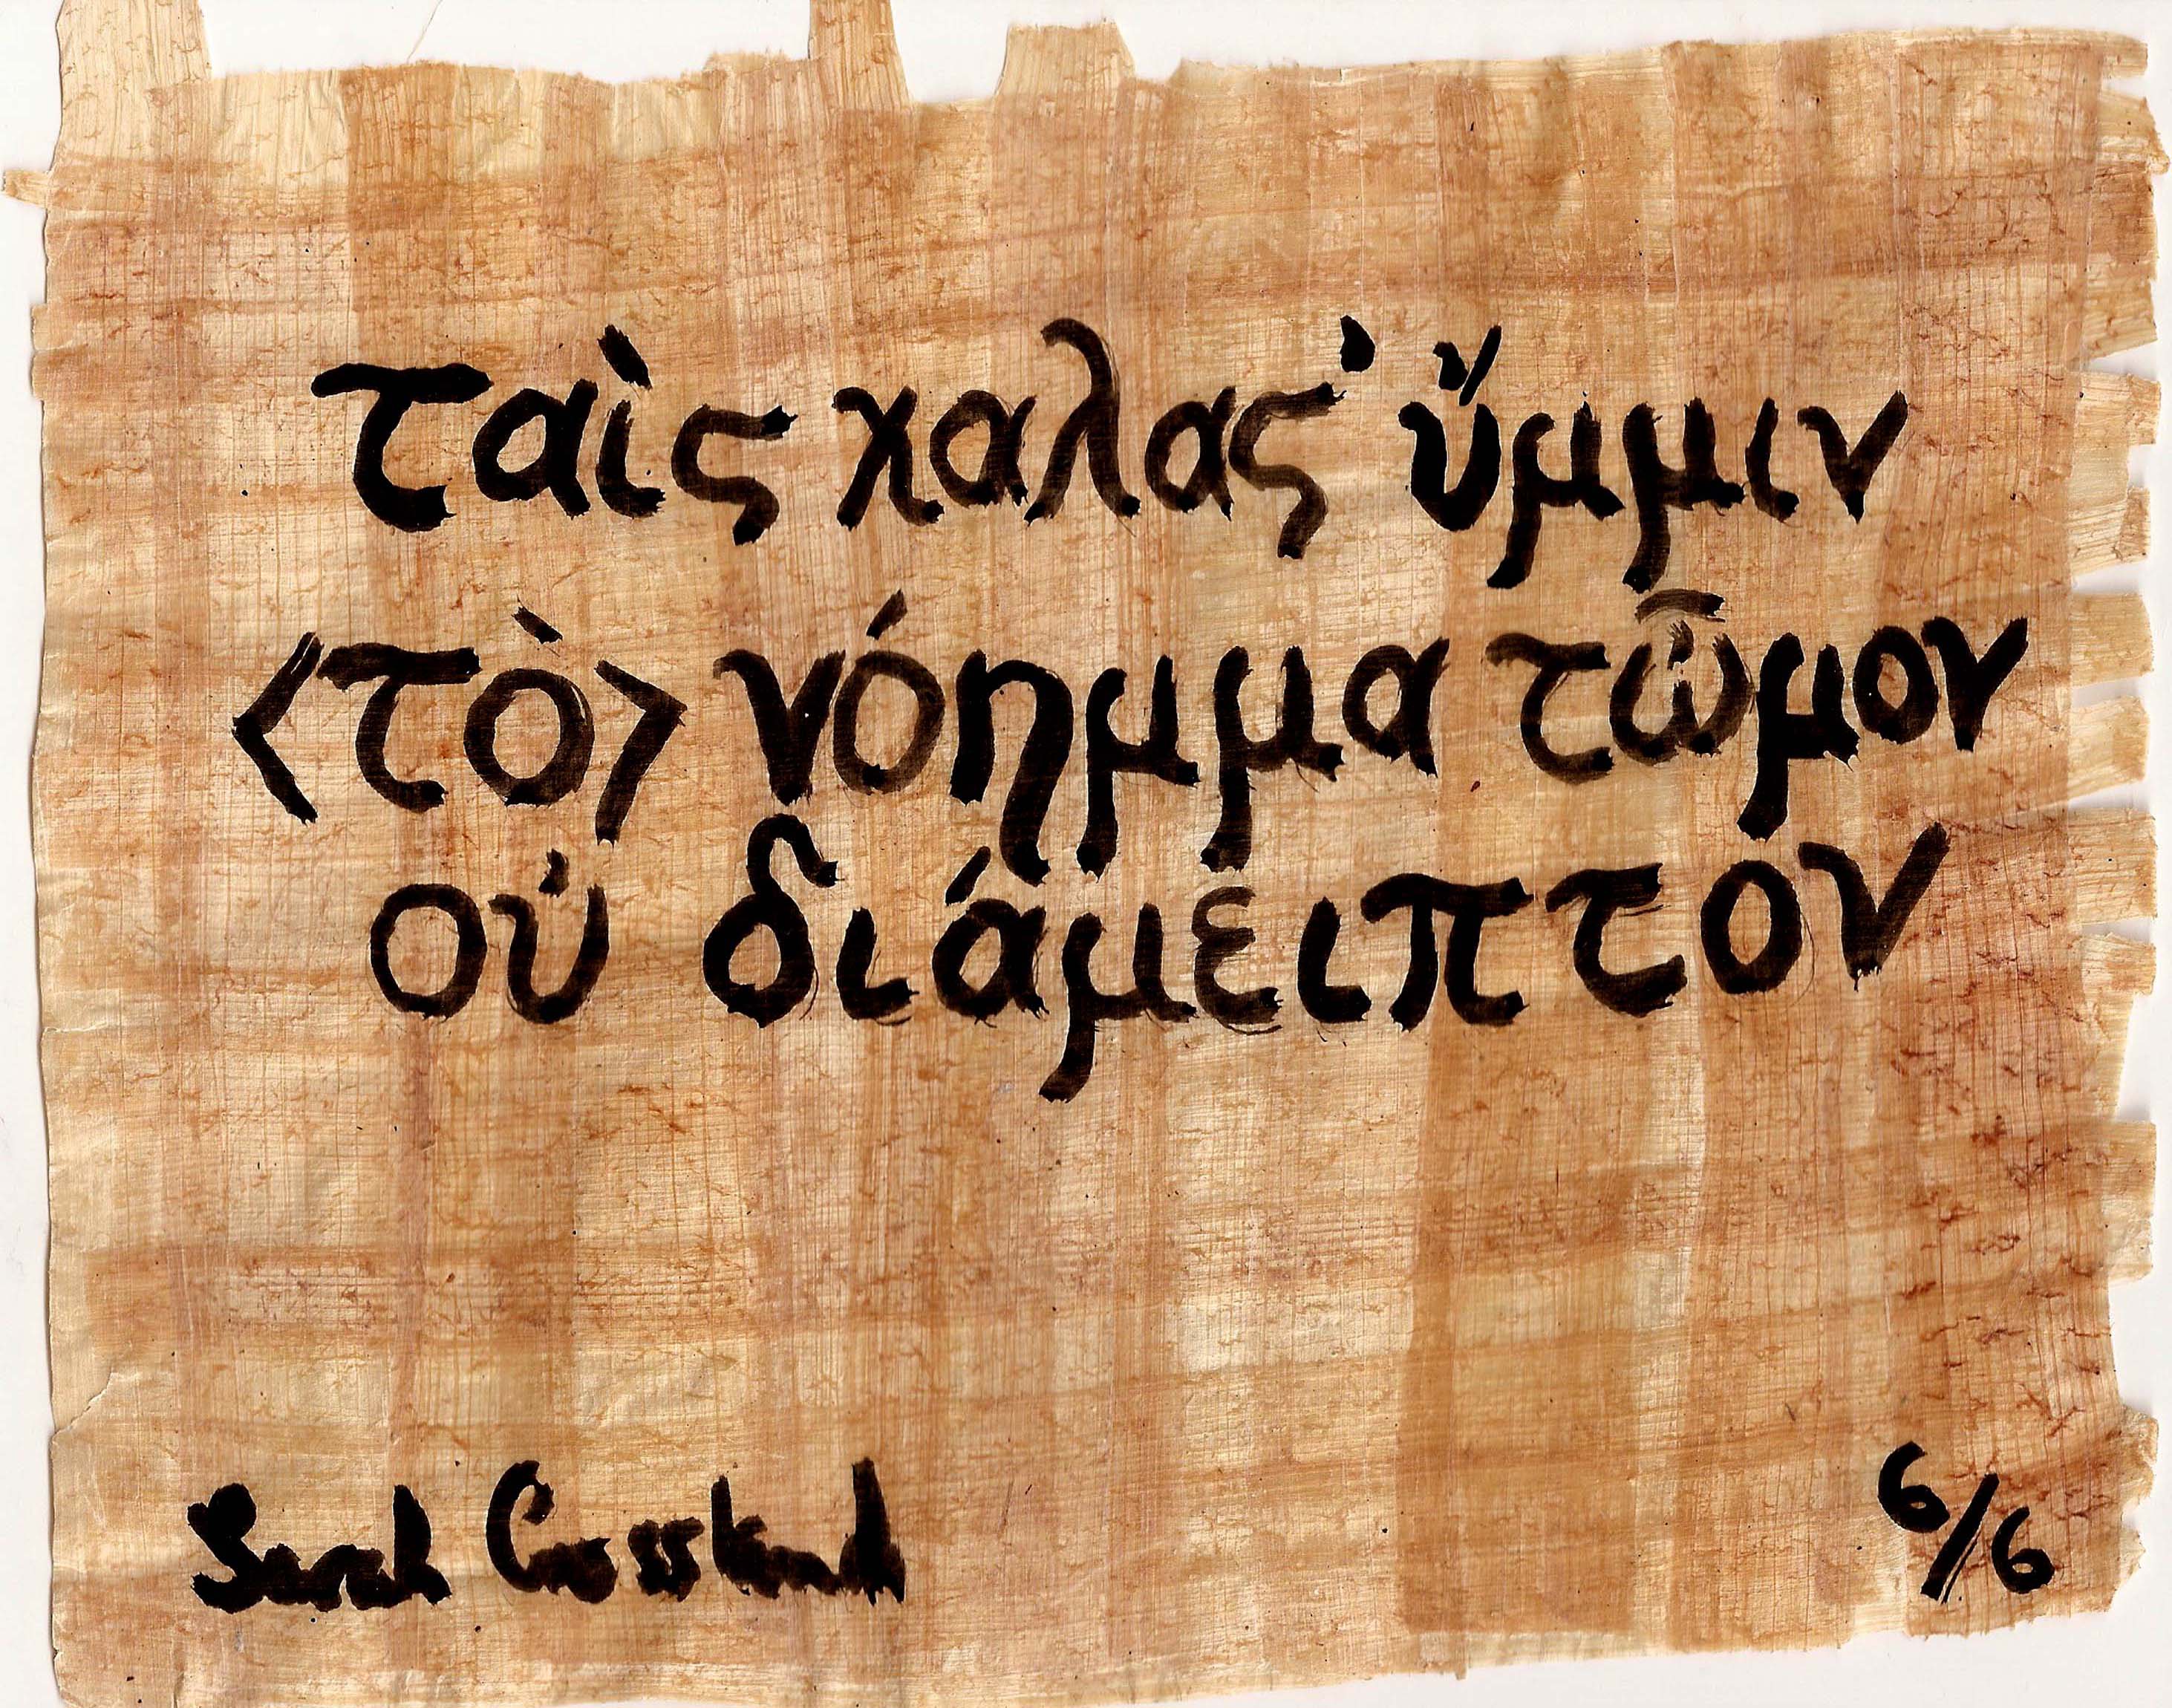 ταὶς καλας᾿ ὔμμιν
<τὸ> νόημμα τὦμον
οὐ διάμειπτον
Sarah Crossland
6/6